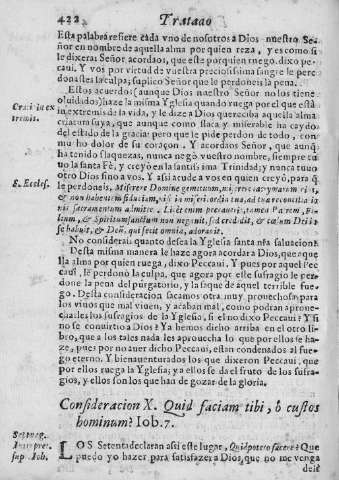 422 Tratado
Esta palabra refiere cada vno de nosotros a Dios nuestro Se-
ñor en nombre de aquella alma por quien reza, y es como si
le dixera: Señor acordaos, que este por quien ruego, dixo pe-
caui. Y vos por virtud de vuestra preciosissima sangre le perdo
donastes la culpa; suplico Señor que le perdoneis la pena.
Estos acuerdos (aunque Dios nuestro Señor no los tiene
oluidados) haze la misma Yglesia quando ruega por el que està
in extremis de la vida, y le dize a Dios que reciba aquella alma
criatura suya, que aunque como flaca y miserable ha caydo
del estado de la gracia: pero que le pide perdon de todo, con
mucho dolor de su coraçon. Y acordaos Señor, que aunq̃
ha tenido flaquezas, nunca negò vuestro nombre, siempre tu
uo la santa Fè, y creyò en la santissima Trinidad; y nunca tuuo
otro Dios sino a vos. Y assi acude a vos en quien creyò, para q̃
le perdoneis, Miserere Domine gemituum,
& non habentem fiduciam, nisi in misericordia tua, ad tua reconcilia
nis sacramentum admitte. Licet enim peccauerit, tamen Patrem, Fi-
lium, & Spiritum sanctum non negauit, sed credidit, & zelum Dei in
se habuit, & Deũ, qui fecit omnia, adorauit.
No considerais quanto desea la Yglesia santa nr̃a saluacion?
Desta misma manera le haze agora acordar a Dios, que aque
lla alma por quien ruega, dixo Peccaui. Y pues por aquel Pec
caui, le perdonò la culpa, que agora por este sufragio le per-
done la pena del purgatorio, y la saque de aquel terrible fue-
go. Desta consideracion sacamos otra muy prouechosa para
los viuos que mal viuen, y acaban mal, como podran aproue-
charles los sufragios de la Yglesia, si el no dixo Peccaui? Y si
no se conuirtio a Dios? Ya hemos dicho arriba en el otro li-
bro, que a los tales nada les aprouecha lo que por ellos se ha-
ze, pues por no auer dicho Peccaui, estan condenados al fue-
go eterno. Y bienauenturados los que dixeron Peccaui, que
por ellos ruega la Yglesia; ya ellos se da el fruto de los sufra-
gios, y ellos son los que han de gozar de la gloria.
Consideracion X. Quid faciam tibi, ò custos
hominum? Iob. 7.
LOS Setenta declaran assi este lugar, Quid potero facere? Que
puedo yo hazer para satisfazer a Dios, que no me venga
E. Eccles.
Interpret.
sup. Iob.